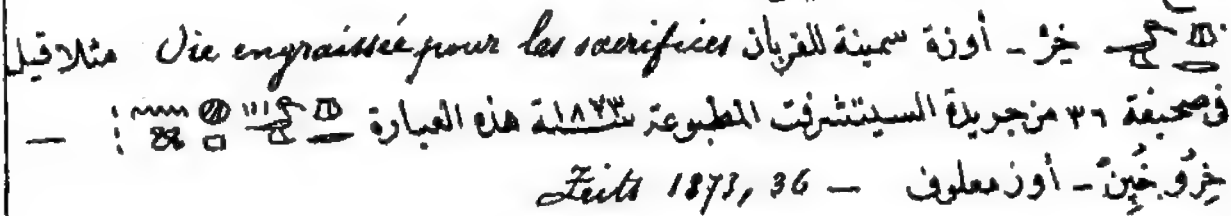 خِرُ - أوزة سمينة للقربان Oie engraissée pour les sacrifices مثلا قيل
فى صحيفة ٣٦ من جريدة السيتتشرفت المطبوعة سنة ١٨٧٣ هذه العبارة : —
خِرُو خُپِنْ - أوز معلوف — Zeits 1873, 36